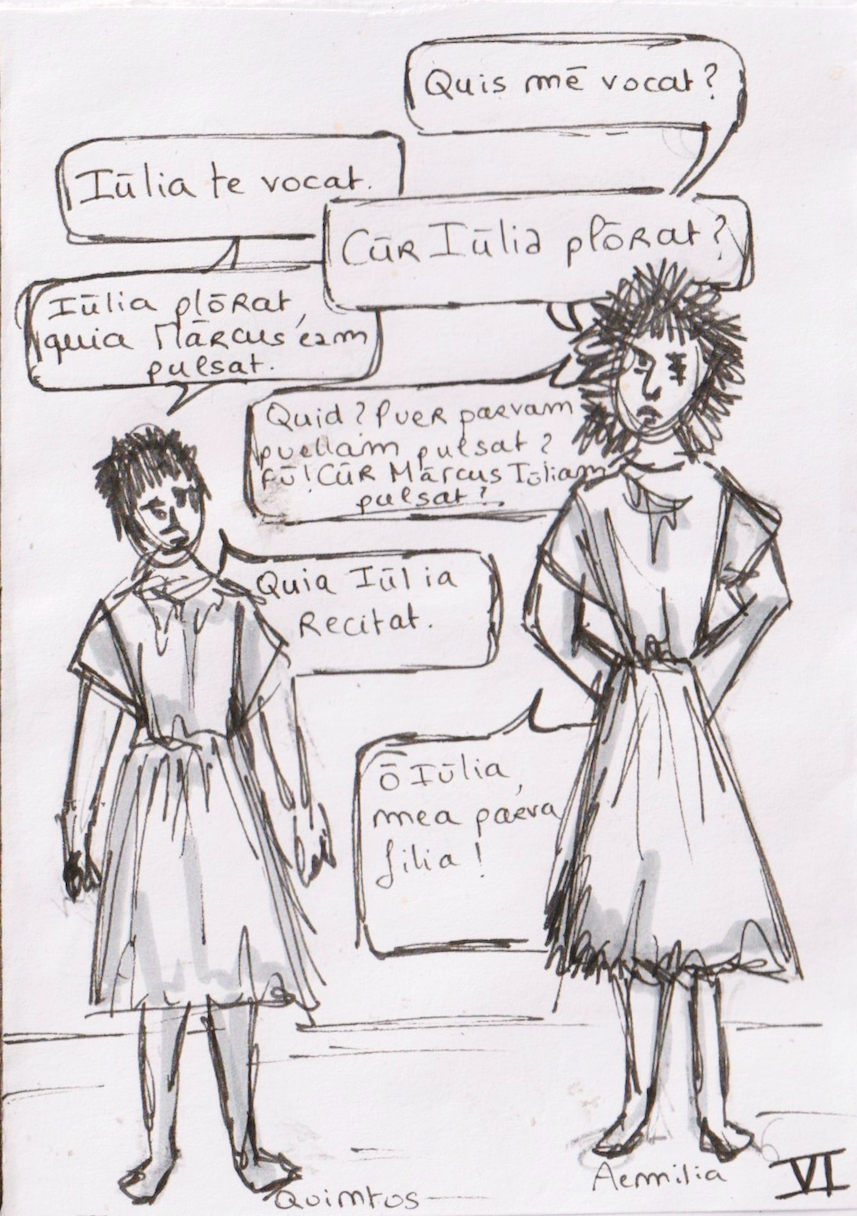 Quis mē vocat?
Iūlia te vocat.
Cūr Iūlia plōrat?
Iūlia plōrat,
quia Mārcus eam
pulsat.
Quid? Puer parvam
puellam pulsat?
Fū! Cūr Mārcus Iūliam
pulsat?
Quia Iūlia
recitat.
Ō Iūlia,
mea parva
filia!
Quintus
Aemilia
VI